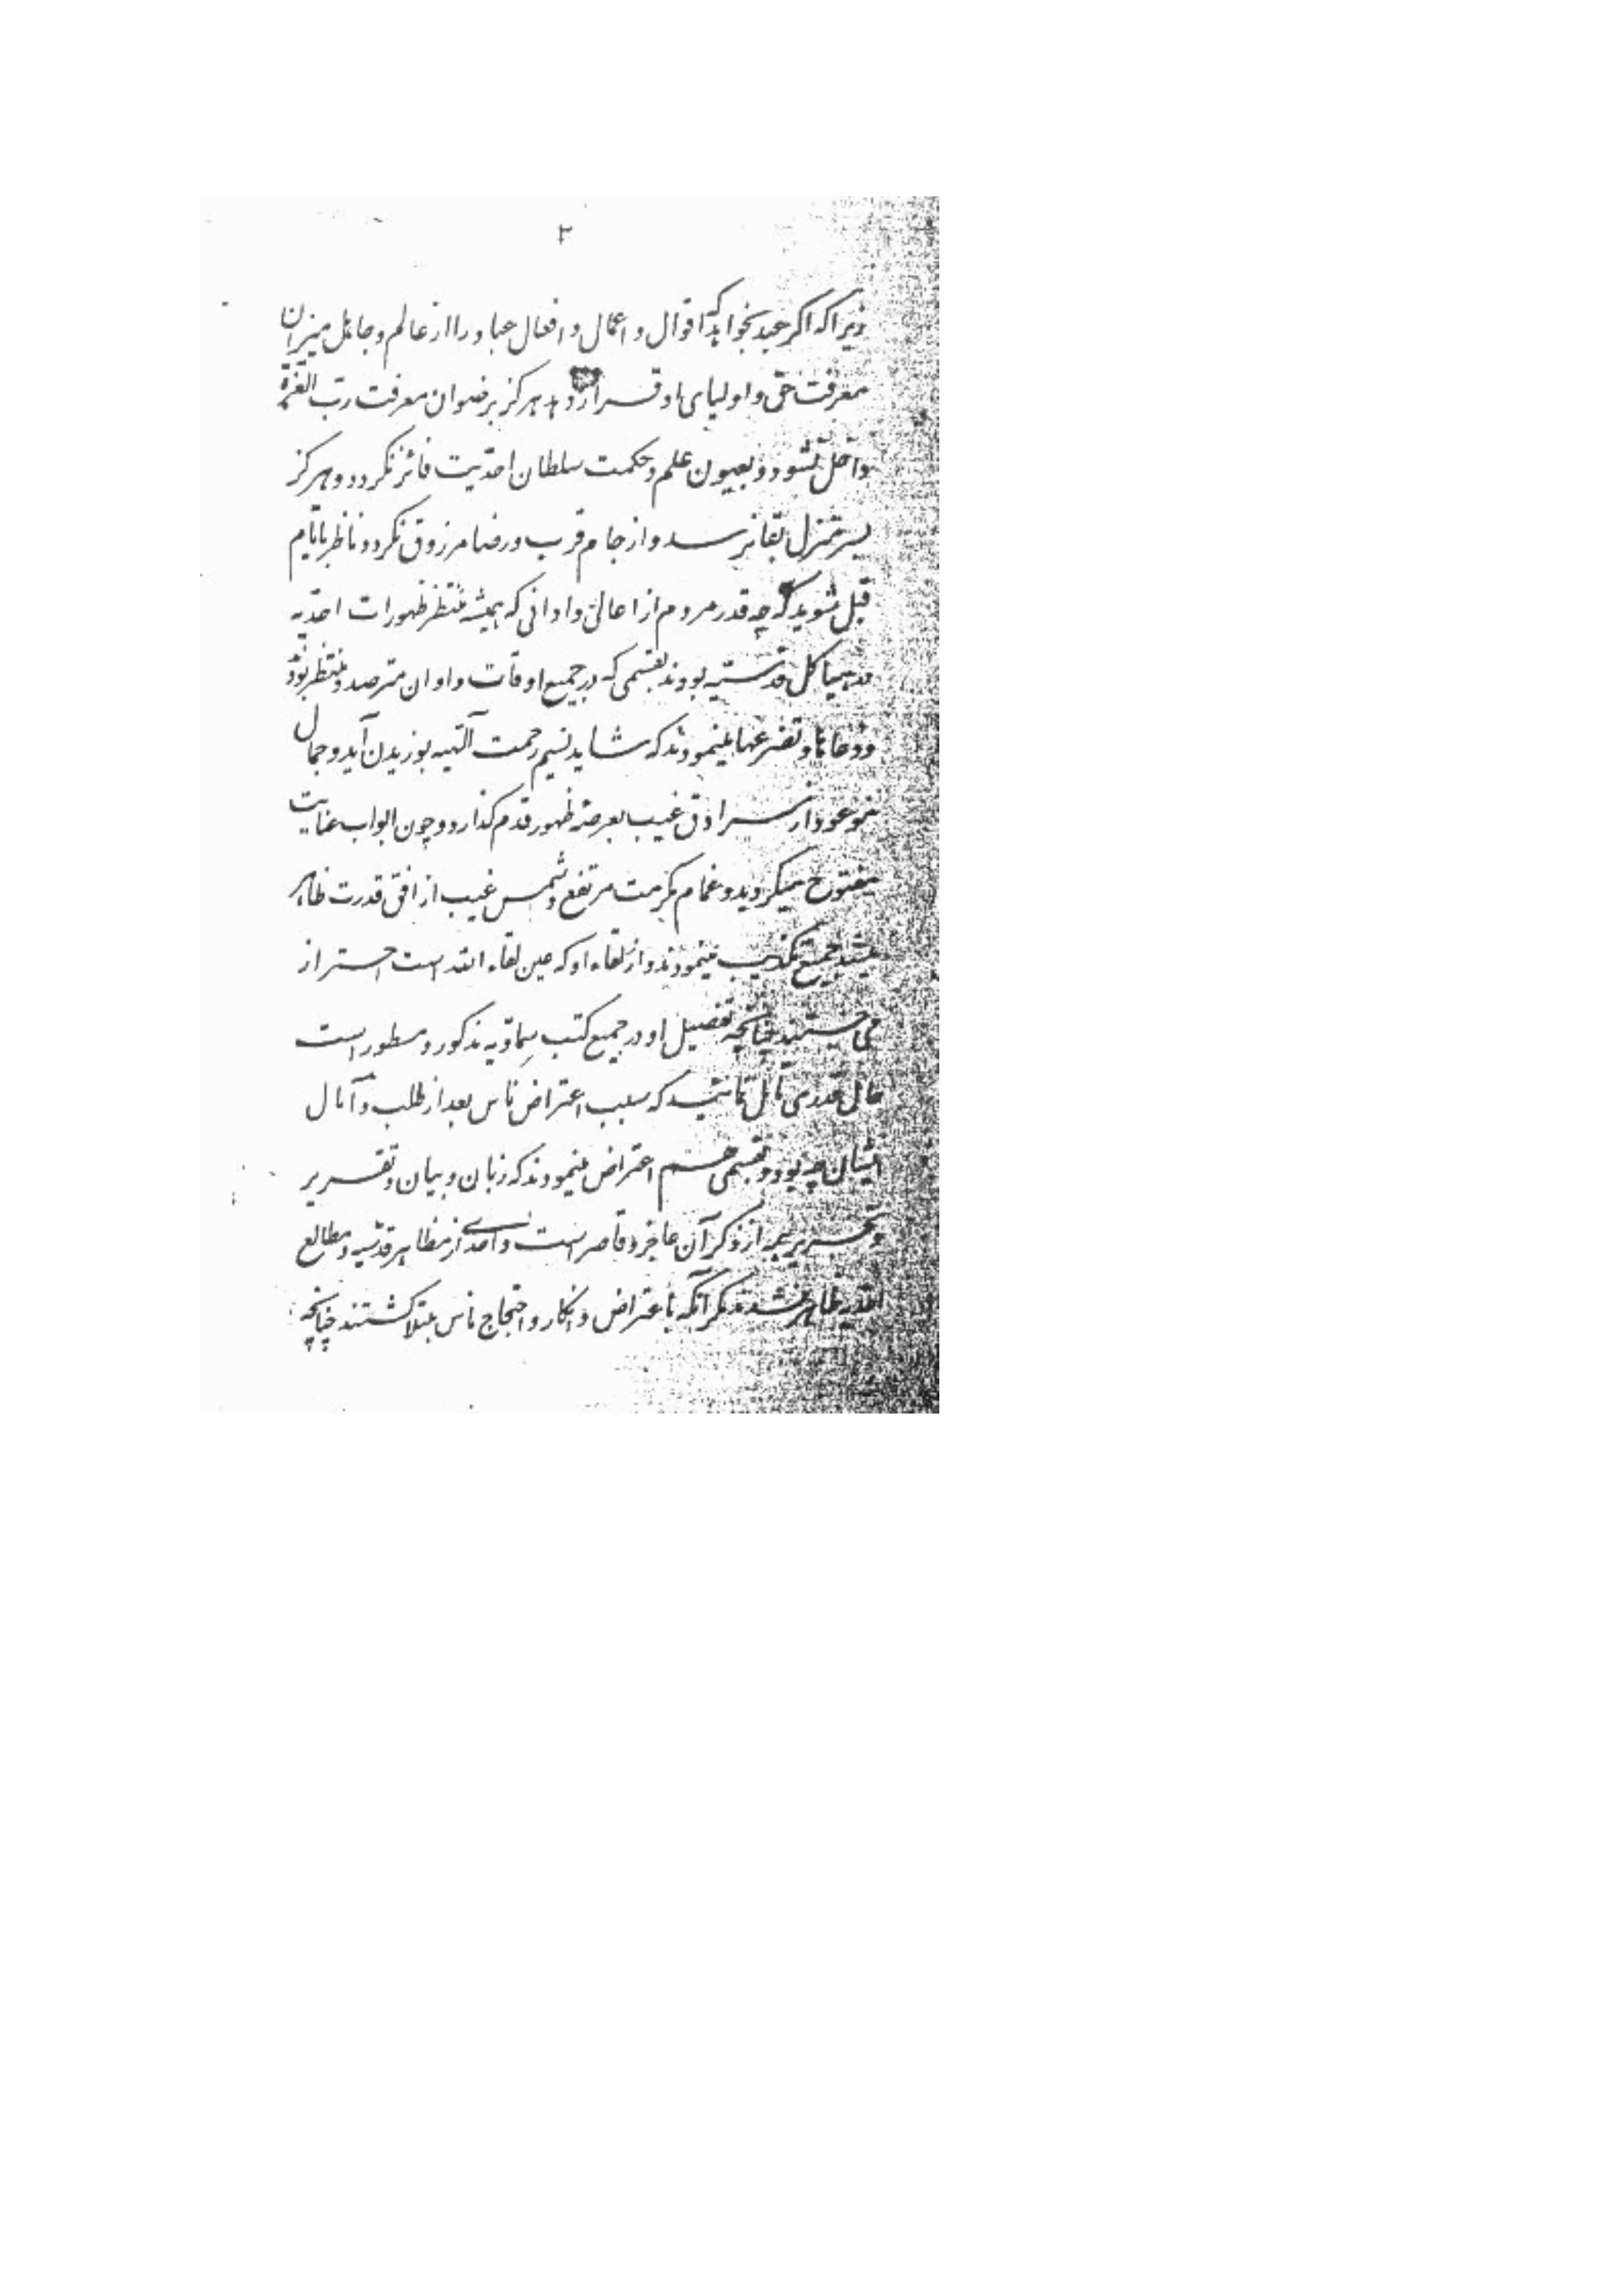 ۳
زیرا که اگر عبد بخواهد که اقوال و اعمال و افعال عباد را از عالم و جاهل میزان
معرفت حق و اولیای او قرار دهد هرگز برضوان معرفت رب العزة
داخل نشود و بعیون علم و حکمت سلطان احدیت فائز نگردد و هرگز
بسرمنزل بقا نرسد و از جام قرب و رضا مرزوق نگردد ناظر بایام
قبل شوید که چه قدر مردم از اعالی و ادانی که همیشه منتظر ظهورات احدیه
در هیاکل قدسیه بودند بقسمی که در جمیع اوقات و اوان مترصد و منتظر بودند
و دعاها و تضرعها مینمودند که شاید نسیم رحمت آلهیه بوزیدن آید و جمال
موعود از سرادق غیب بعرصه ظهور قدم گذارد و چون ابواب عنایت
مفتوح میگردید و غمام مکرمت مرتفع و شمس غیب از افق قدرت ظاهر
میشد جمیع تکذیب مینمودند و از لقاء او که عین لقاء الله است احتراز
می‌جستند چنانچه تفصیل او در جمیع کتب سماویه مذکور و مسطور است
حال قدری تأمل نمائید که سبب اعتراض ناس بعد از طلب و آمال
ایشان چه بود و بقسمی هم اعتراض مینمودند که زبان و بیان و تقریر
و تحریر همه از ذکر آن عاجز و قاصر است و احدی از مظاهر قدسیه و مطالع
احدیه ظاهر نشد مگر آنکه باعتراض و انکار و احتجاج ناس مبتلا گشتند چنانچه